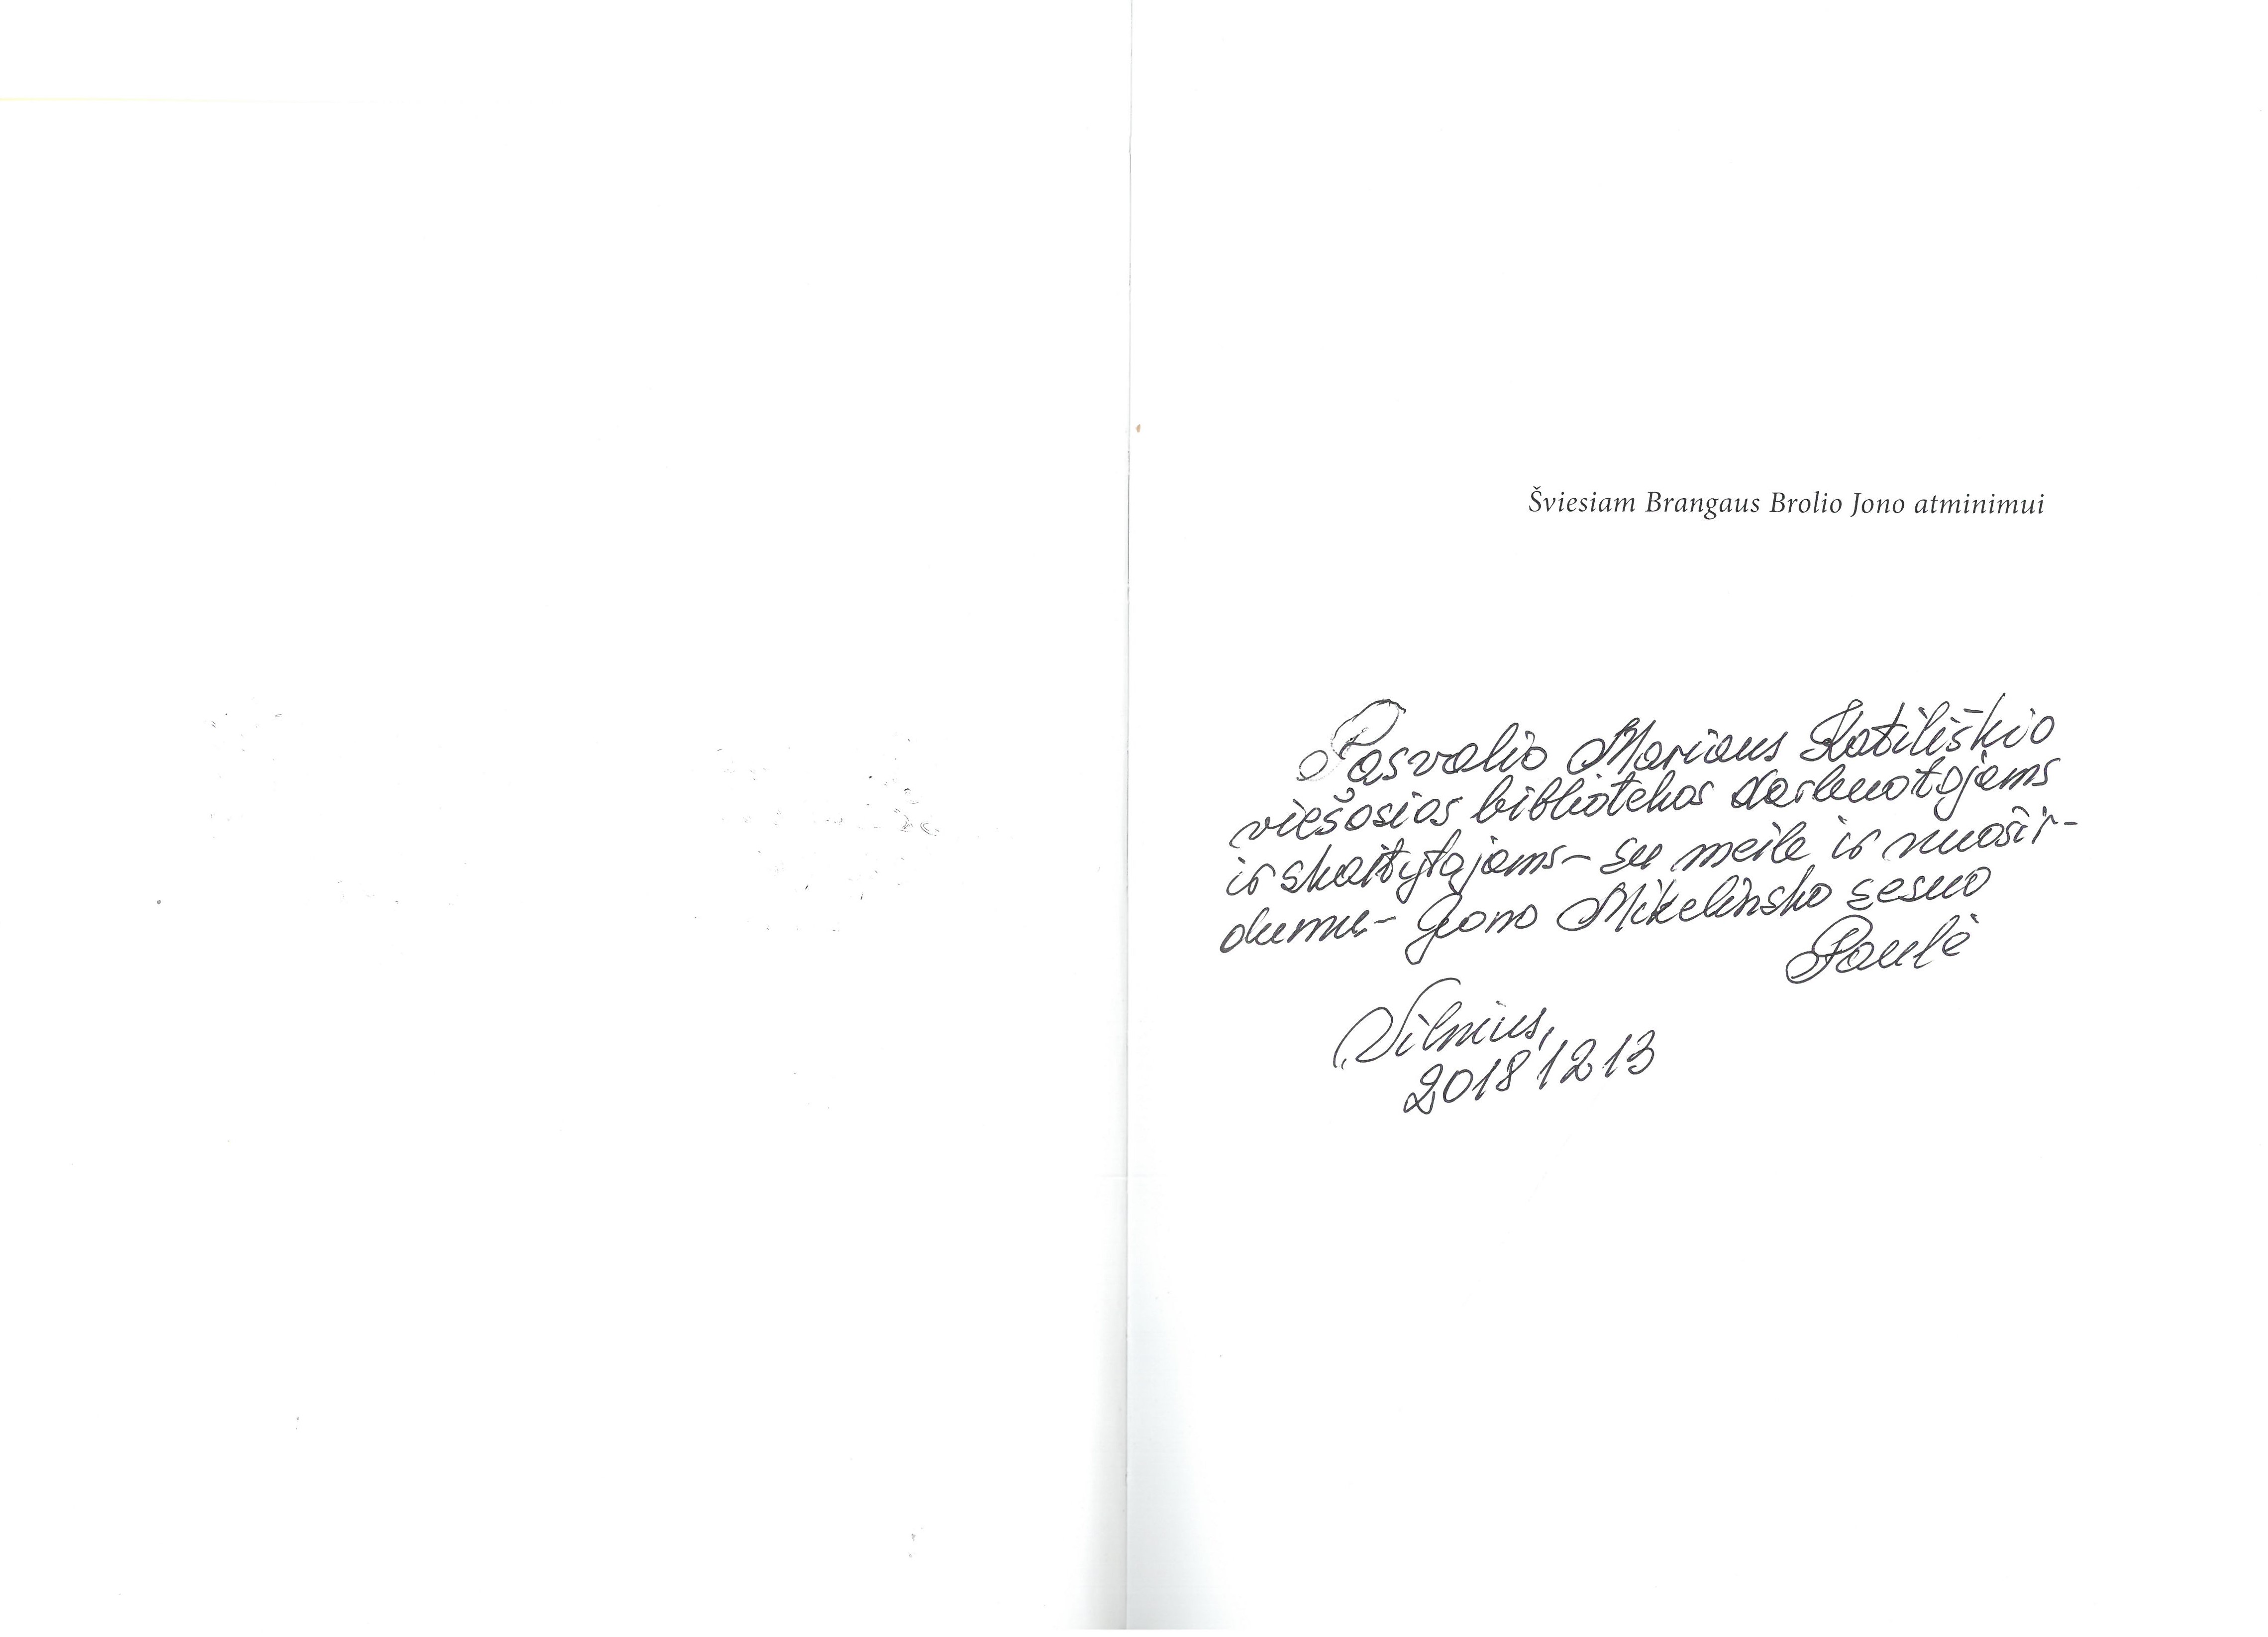 Šviesiam Brangaus Brolio Jono atminimui
Pasvalio Mariaus Katiliškio
viešosios bibliotekos darbuotojams
ir skaitytojams – su meile ir nuošir-
dumu – Jono Mikelinsko sesuo
Paulė
Vilnius,
2018 12 13